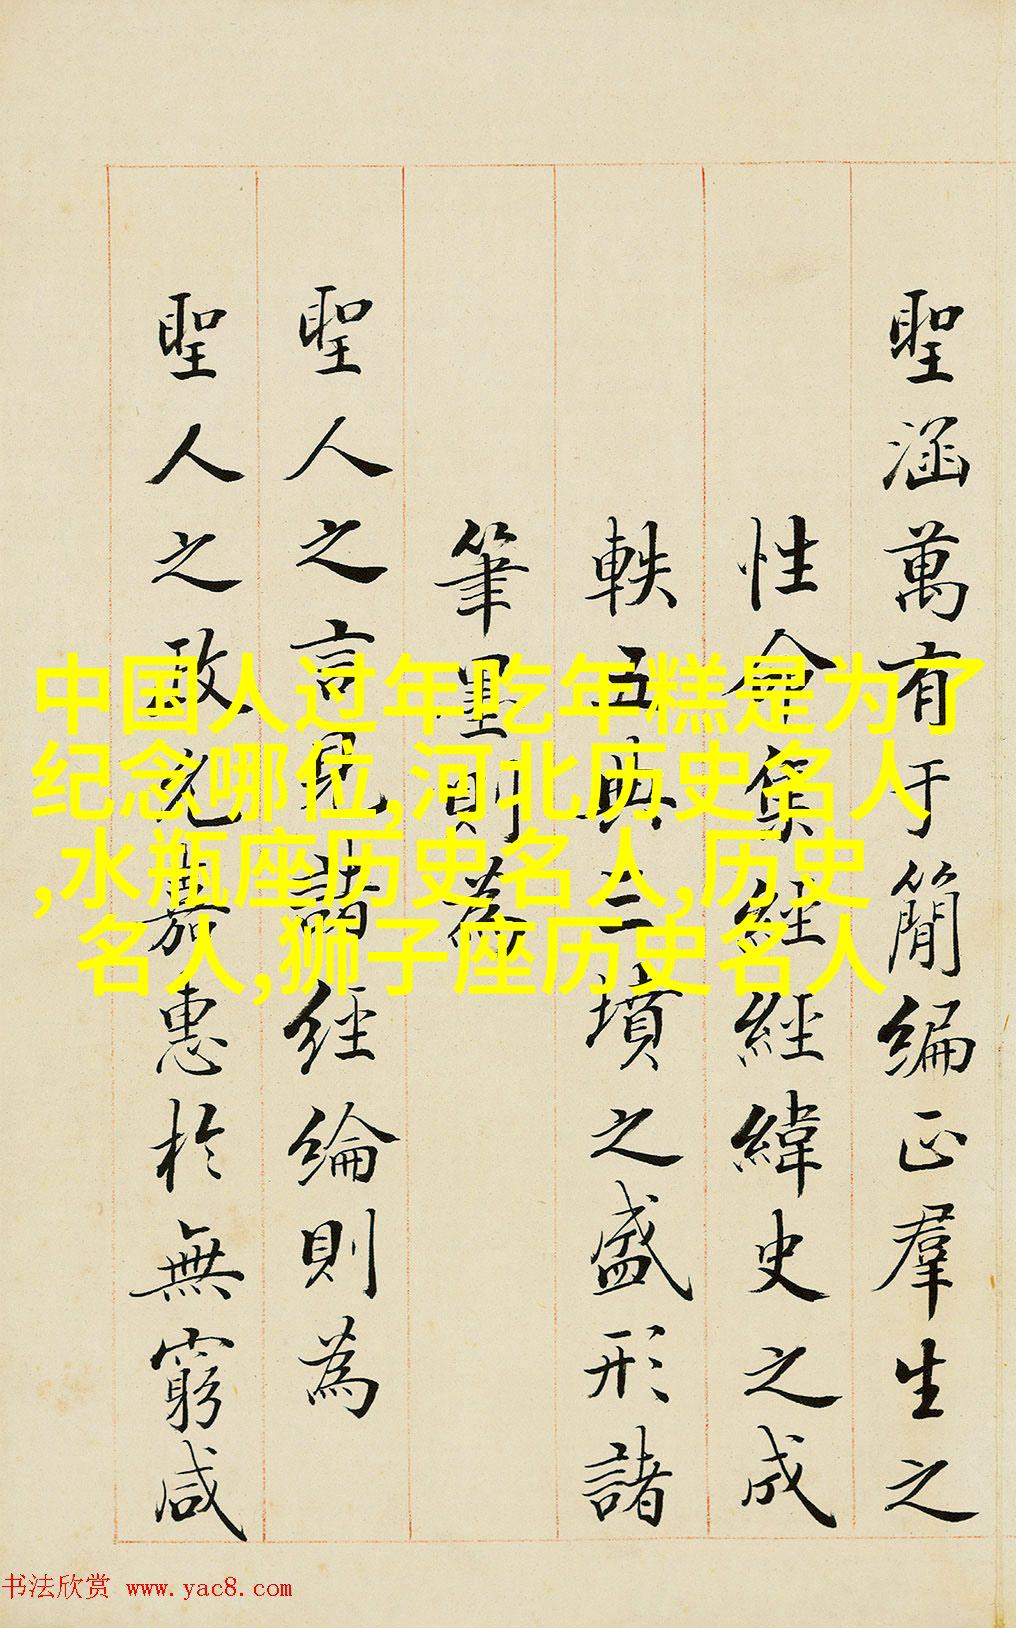 聖涵萬有于簡編正羣生之
性命集經經緯史之成
軼五典三墳之盛形諸
筆墨則為
聖人之言見諸經綸則為
聖人之政允嘉惠於無窮咸
中国人过年吃年糕是为了
纪念哪位,河北历史名人
,水瓶座历史名人,历史
名人,狮子座历史名人
书法欣赏 www.yac8.com